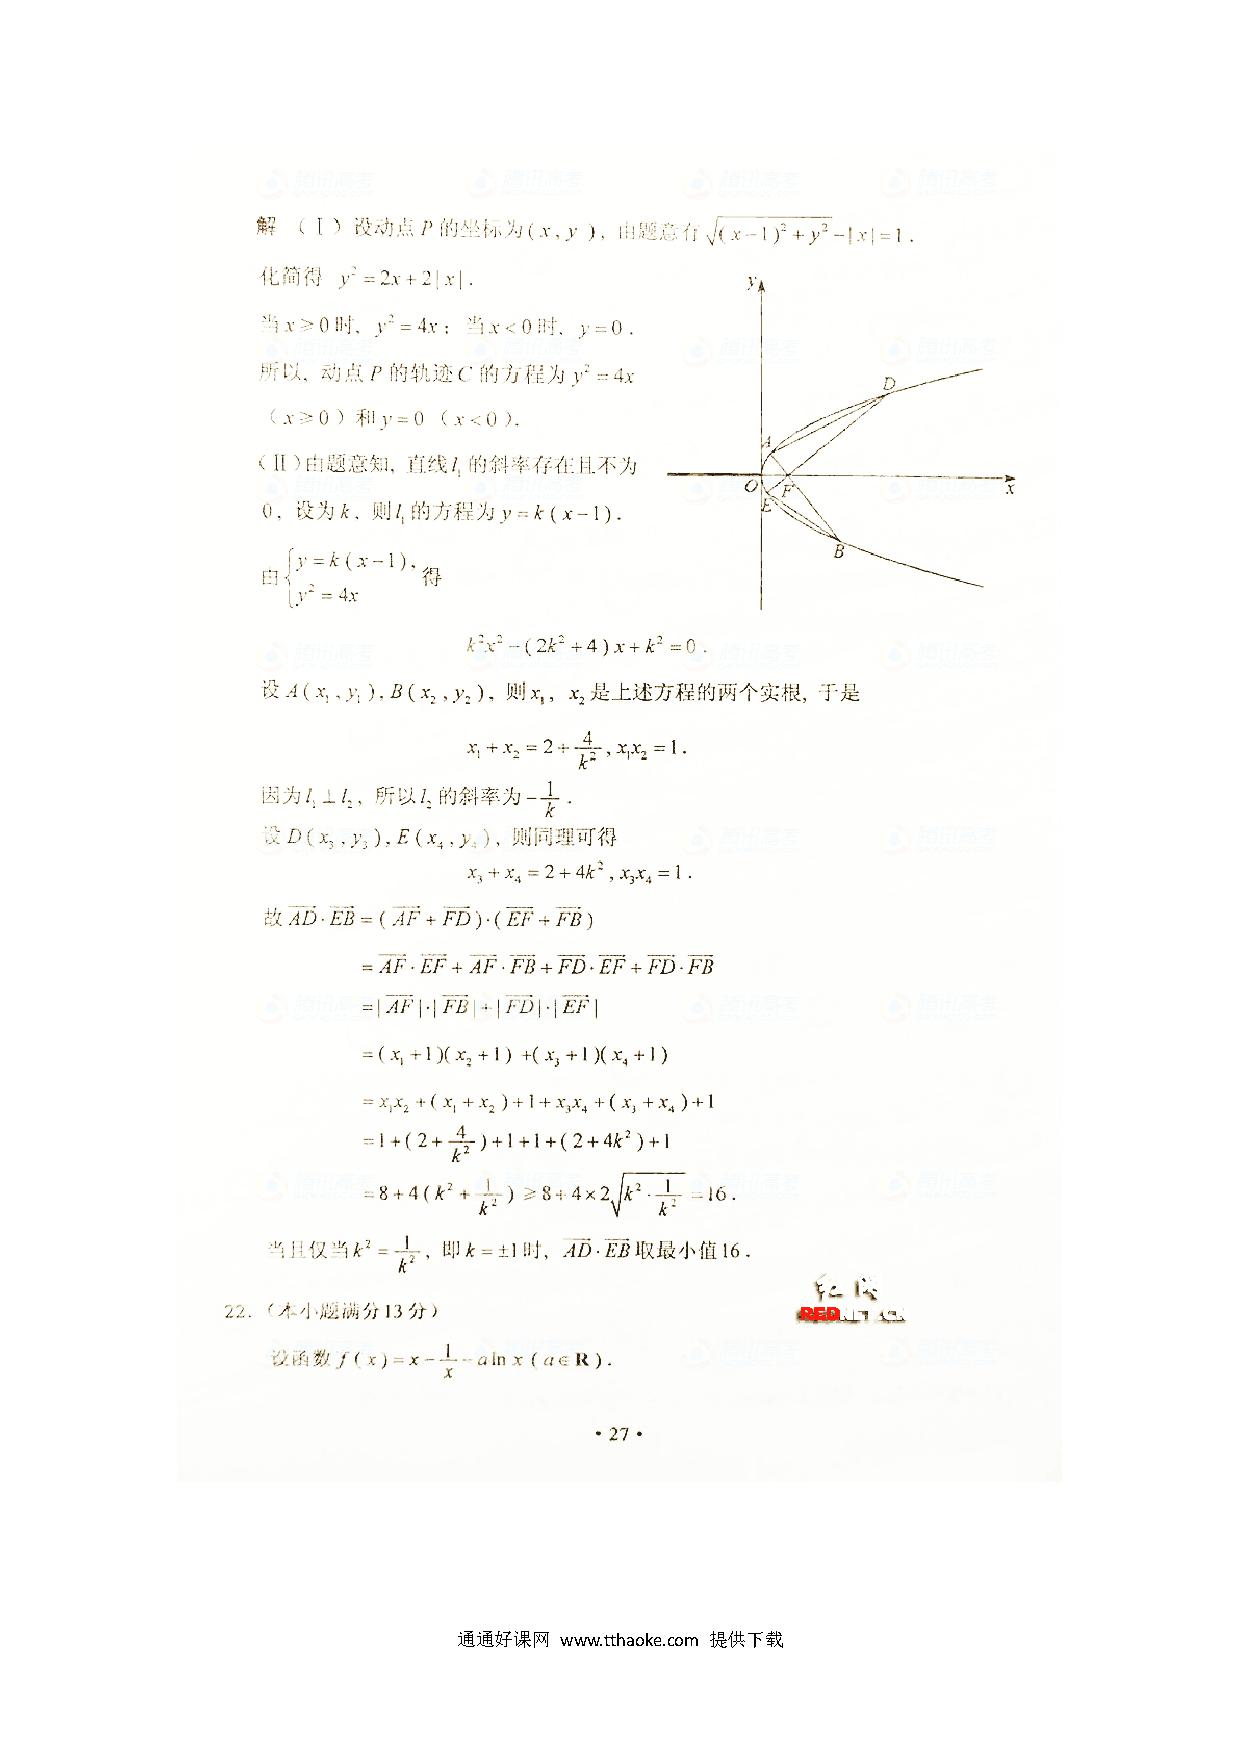 解 （Ⅰ）设动点 P 的坐标为(x, y)，由题意有 √((x−1)²+y²)−|x|=1.
化简得 y²=2x+2|x|.
当 x≥0 时，y²=4x；当 x<0 时，y=0.
所以，动点 P 的轨迹 C 的方程为 y²=4x
（x≥0）和 y=0（x<0）.
（Ⅱ）由题意知，直线 l₁ 的斜率存在且不为
0，设为 k，则 l₁ 的方程为 y=k(x−1).
由 { y=k(x−1), y²=4x 得
y
D
A
O
F
x
E
B
k²x²−(2k²+4)x+k²=0.
设 A(x₁,y₁), B(x₂,y₂)，则 x₁，x₂ 是上述方程的两个实根，于是
x₁+x₂=2+4/k², x₁x₂=1.
因为 l₁⊥l₂，所以 l₂ 的斜率为 −1/k.
设 D(x₃,y₃), E(x₄,y₄)，则同理可得
x₃+x₄=2+4k², x₃x₄=1.
故 AD·EB=(AF+FD)·(EF+FB)
=AF·EF+AF·FB+FD·EF+FD·FB
=|AF|·|FB|+|FD|·|EF|
=(x₁+1)(x₂+1)+(x₃+1)(x₄+1)
=x₁x₂+(x₁+x₂)+1+x₃x₄+(x₃+x₄)+1
=1+(2+4/k²)+1+1+(2+4k²)+1
=8+4(k²+1/k²)≥8+4×2√(k²·1/k²)=16.
当且仅当 k²=1/k²，即 k=±1 时，AD·EB 取最小值 16.
22.（本小题满分13分）
设函数 f(x)=x−1/x−a ln x (a∈R).
·27·
通通好课网 www.tthaoke.com 提供下载